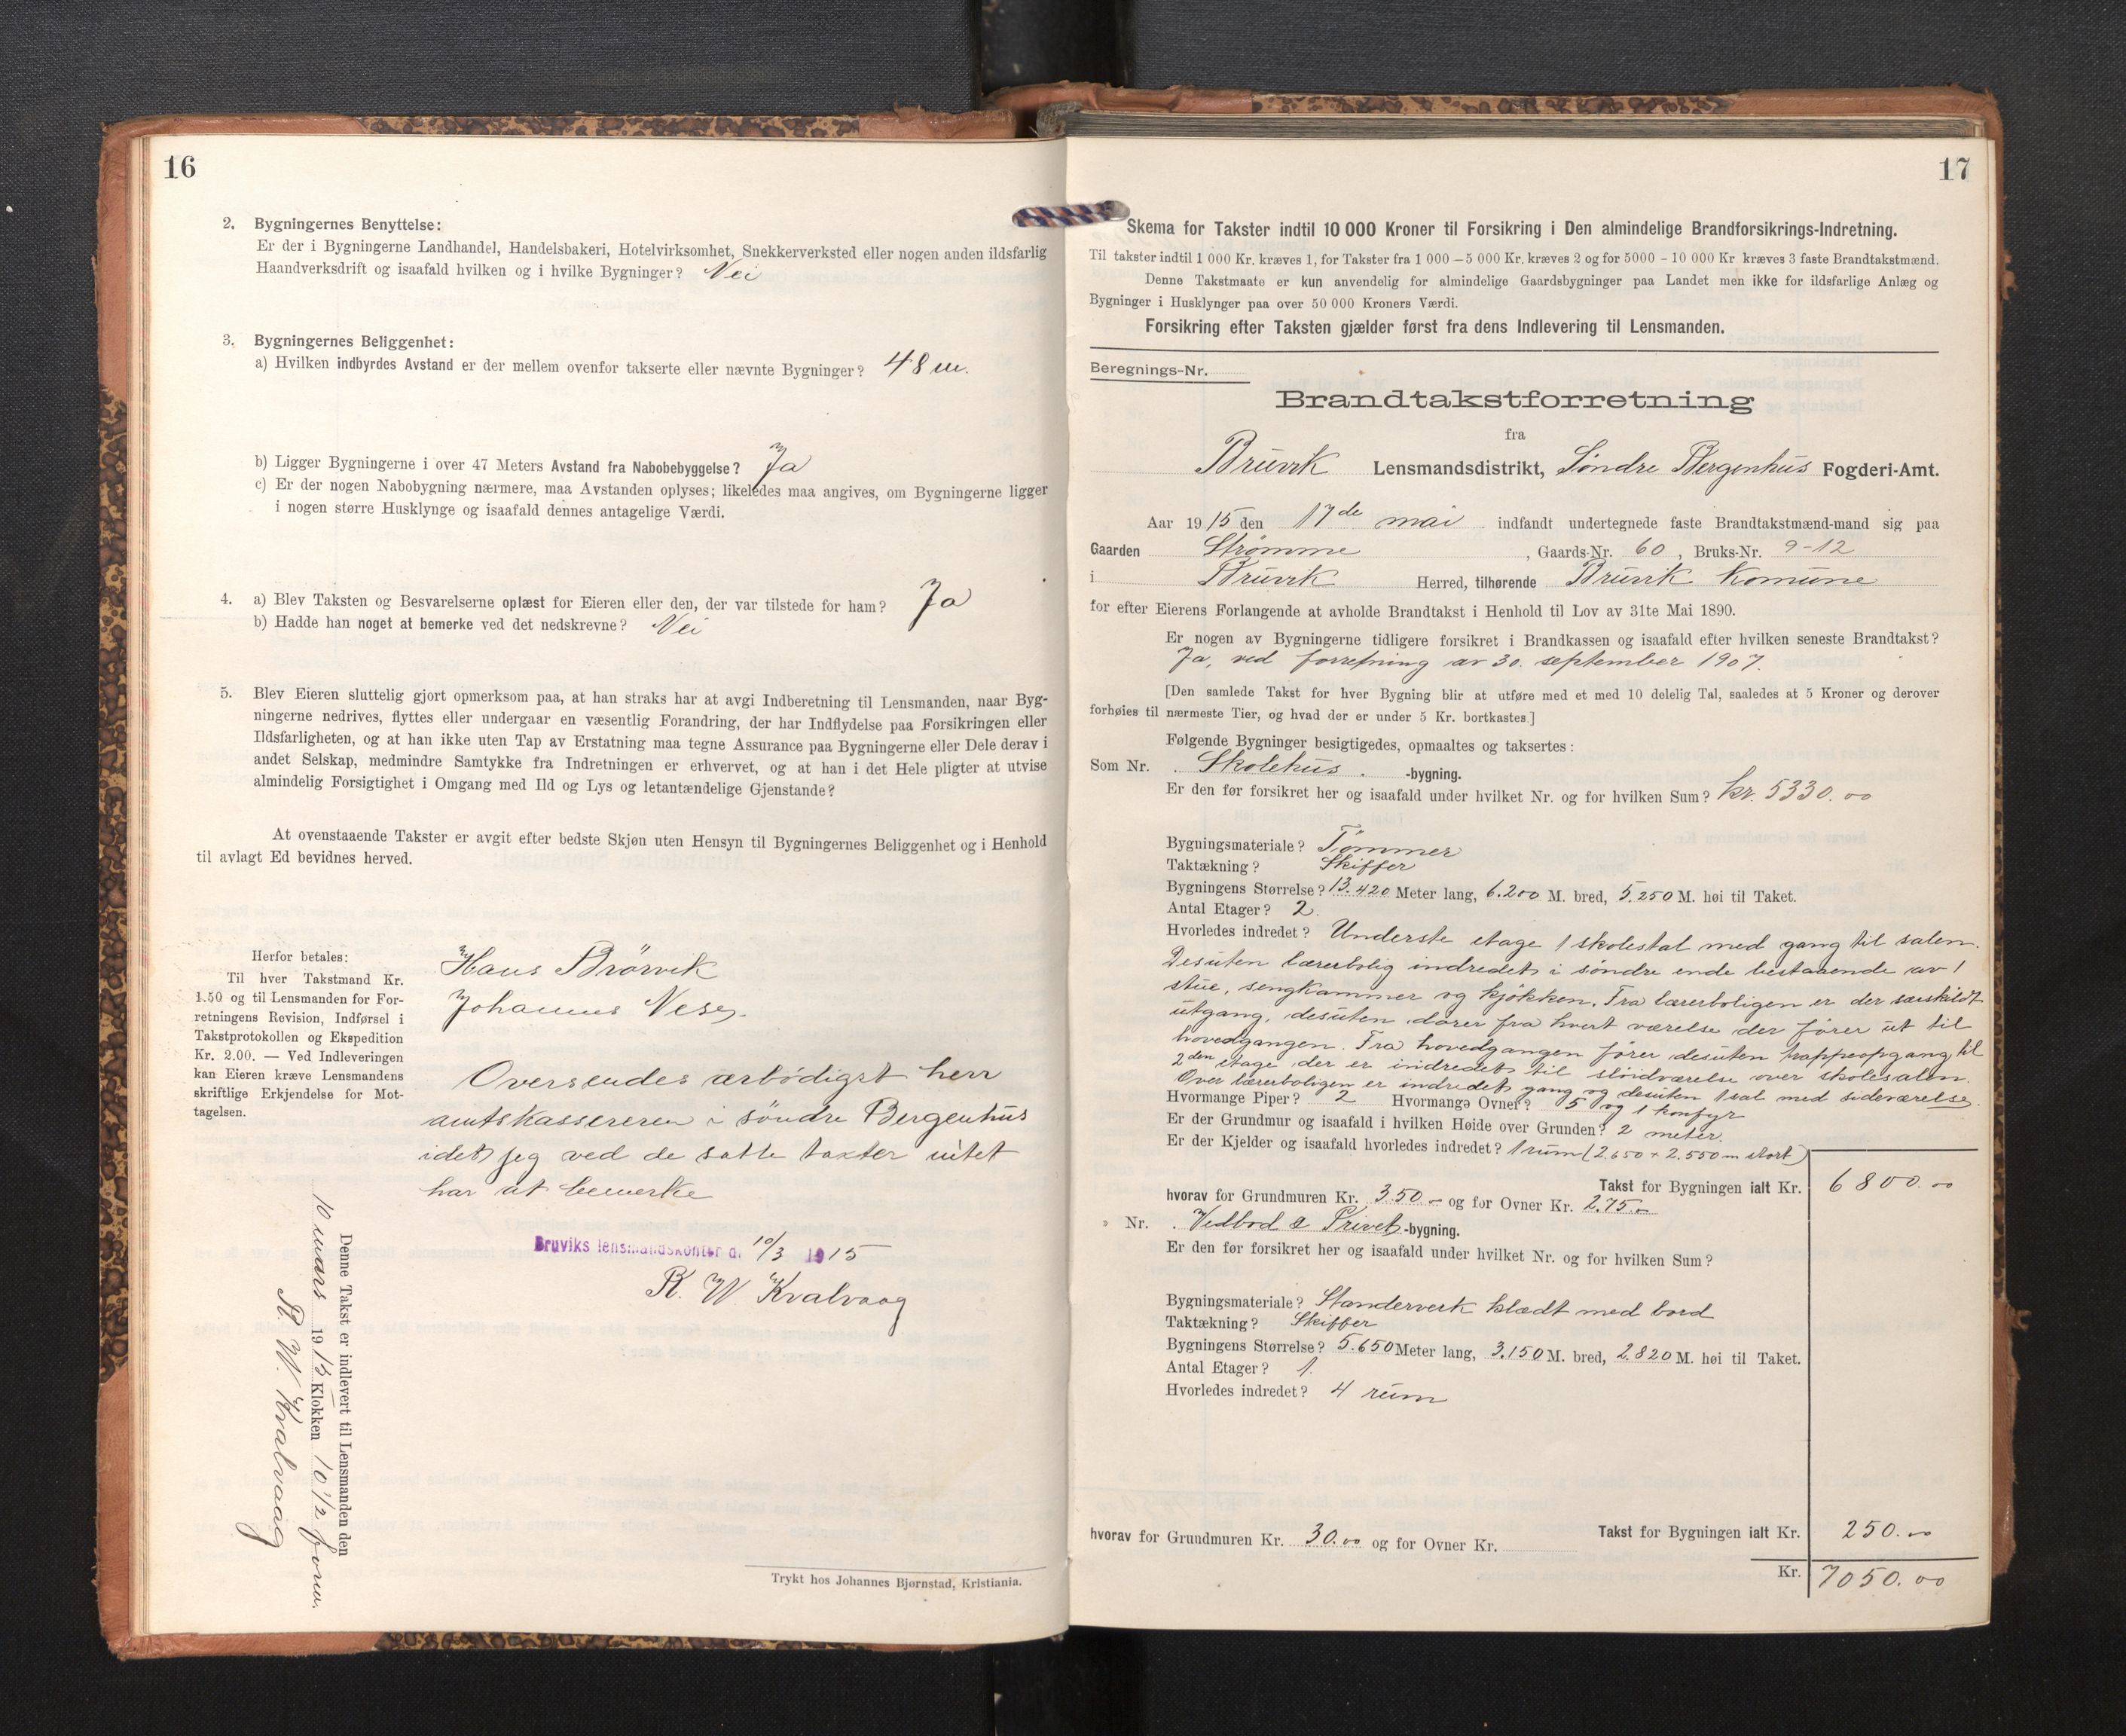 16
2. Bygningernes Benyttelse:
Er der i Bygningerne Landhandel, Handelsbakeri, Hotelvirksomhet, Snekkerverksted eller nogen anden ildsfarlig
Haandverksdrift og isaafald hvilken og i hvilke Bygninger? Nei
3. Bygningernes Beliggenhet:
a) Hvilken indbyrdes Avstand er der mellem ovenfor takserte eller nævnte Bygninger? 48 m.
b) Ligger Bygningerne i over 47 Meters Avstand fra Nabobebyggelse? Ja
c) Er der nogen Nabobygning nærmere, maa Avstanden oplyses; likeledes maa angives, om Bygningerne ligger
i nogen større Husklynge og isaafald dennes antagelige Værdi.
4. a) Blev Taksten og Besvarelserne oplæst for Eieren eller den, der var tilstede for ham? Ja
b) Hadde han noget at bemerke ved det nedskrevne? Nei
5. Blev Eieren sluttelig gjort opmerksom paa, at han straks har at avgi Indberetning til Lensmanden, naar Byg-
ningerne nedrives, flyttes eller undergaar en væsentlig Forandring, der har Indflydelse paa Forsikringen eller
Ildsfarligheten, og at han ikke uten Tap av Erstatning maa tegne Assurance paa Bygningerne eller Dele derav i
andet Selskap, medmindre Samtykke fra Indretningen er erhvervet, og at han i det Hele pligter at utvise
almindelig Forsigtighet i Omgang med Ild og Lys og letantændelige Gjenstande?
At ovenstaaende Takster er avgit efter bedste Skjøn uten Hensyn til Bygningernes Beliggenhet og i Henhold
til avlagt Ed bevidnes herved.
Herfor betales:
Til hver Takstmand Kr.
1.50 og til Lensmanden for For-
retningens Revision, Indførsel i
Takstprotokollen og Ekspedition
Kr. 2.00. — Ved Indleveringen
kan Eieren kræve Lensmandens
skriftlige Erkjendelse for Mot-
tagelsen.
Hans Brørvik
Johannes Nese.
Oversendes ærbødigst herr
amtskassereren i søndre Bergenhus
idet jeg ved de satte takster intet
har at bemerke
Bruviks lensmandskontor d. 10/3 1915
R. W. Kvalvaag
Denne Takst er indlevert til Lensmanden den
10 mars 1915 Klokken 10 1/2 form.
R. W. Kvalvaag
Trykt hos Johannes Bjørnstad, Kristiania.
17
Skema for Takster indtil 10 000 Kroner til Forsikring i Den almindelige Brandforsikrings-Indretning.
Til takster indtil 1 000 Kr. kræves 1, for Takster fra 1 000 – 5 000 Kr. kræves 2 og for 5000 – 10 000 Kr kræves 3 faste Brandtakstmænd.
Denne Takstmaate er kun anvendelig for almindelige Gaardsbygninger paa Landet men ikke for ildsfarlige Anlæg og
Bygninger i Husklynger paa over 50 000 Kroners Værdi.
Forsikring efter Taksten gjælder først fra dens Indlevering til Lensmanden.
Beregnings-Nr.
Brandtakstforretning
fra
Bruvik Lensmandsdistrikt, Søndre Bergenhus Fogderi-Amt.
Aar 1915 den 17de mai indfandt undertegnede faste Brandtakstmænd-mand sig paa
Gaarden Strømme, Gaards-Nr. 60, Bruks-Nr. 9-12
i Bruvik Herred, tilhørende Bruvik Komune
for efter Eierens Forlangende at avholde Brandtakst i Henhold til Lov av 31te Mai 1890.
Er nogen av Bygningerne tidligere forsikret i Brandkassen og isaafald efter hvilken seneste Brandtakst?
Ja, ved forretning av 30. september 1907.
[Den samlede Takst for hver Bygning blir at utføre med et med 10 delelig Tal, saaledes at 5 Kroner og derover
forhøies til nærmeste Tier, og hvad der er under 5 Kr. bortkastes.]
Følgende Bygninger besigtigedes, opmaaltes og taksertes:
Som Nr. Skolehus -bygning.
Er den før forsikret her og isaafald under hvilket Nr. og for hvilken Sum? kr. 5330.00
Bygningsmateriale? Tømmer
Taktækning? Skiffer
Bygningens Størrelse? 13.420 Meter lang, 6.200 M. bred, 5.250 M. høi til Taket.
Antal Etager? 2.
Hvorledes indredet? Underste etage 1 skolestal med gang til salen.
Desuten lærerbolig indredet i søndre ende bestaaende av 1
stue, sengkammer og kjøkken. Fra lærerboligen er der særskildt
utgang, desuten dører fra hvert værelse der fører ut til
hovedgangen. Fra hovedgangen fører desuten trappeopgang til
2den etage der er indredet til sløidværelse over skolesalen.
Over lærerboligen er indredet gang og desuten 1 sal med sideværelse.
Hvormange Piper? 2 Hvormange Ovner? 5 og 1 konfyr
Er der Grundmur og isaafald i hvilken Høide over Grunden? 2 meter.
Er der Kjelder og isaafald hvorledes indredet? 1 rum (2.650 + 2.550 m stort)
Takst for Bygningen ialt Kr. 6800.00
hvorav for Grundmuren Kr. 350.- og for Ovner Kr. 275.-
» Nr. Vedbod & Privet -bygning.
Er den før forsikret her og isaafald under hvilket Nr. og for hvilken Sum?
Bygningsmateriale? Standerverk klædt med bord
Taktækning? Skiffer
Bygningens Størrelse? 5.650 Meter lang, 3.150 M. bred, 2.820 M. høi til Taket.
Antal Etager? 1.
Hvorledes indredet? 4 rum
Takst for Bygningen ialt Kr. 250.00
hvorav for Grundmuren Kr. 30.00 og for Ovner Kr.
Kr. 7050.00